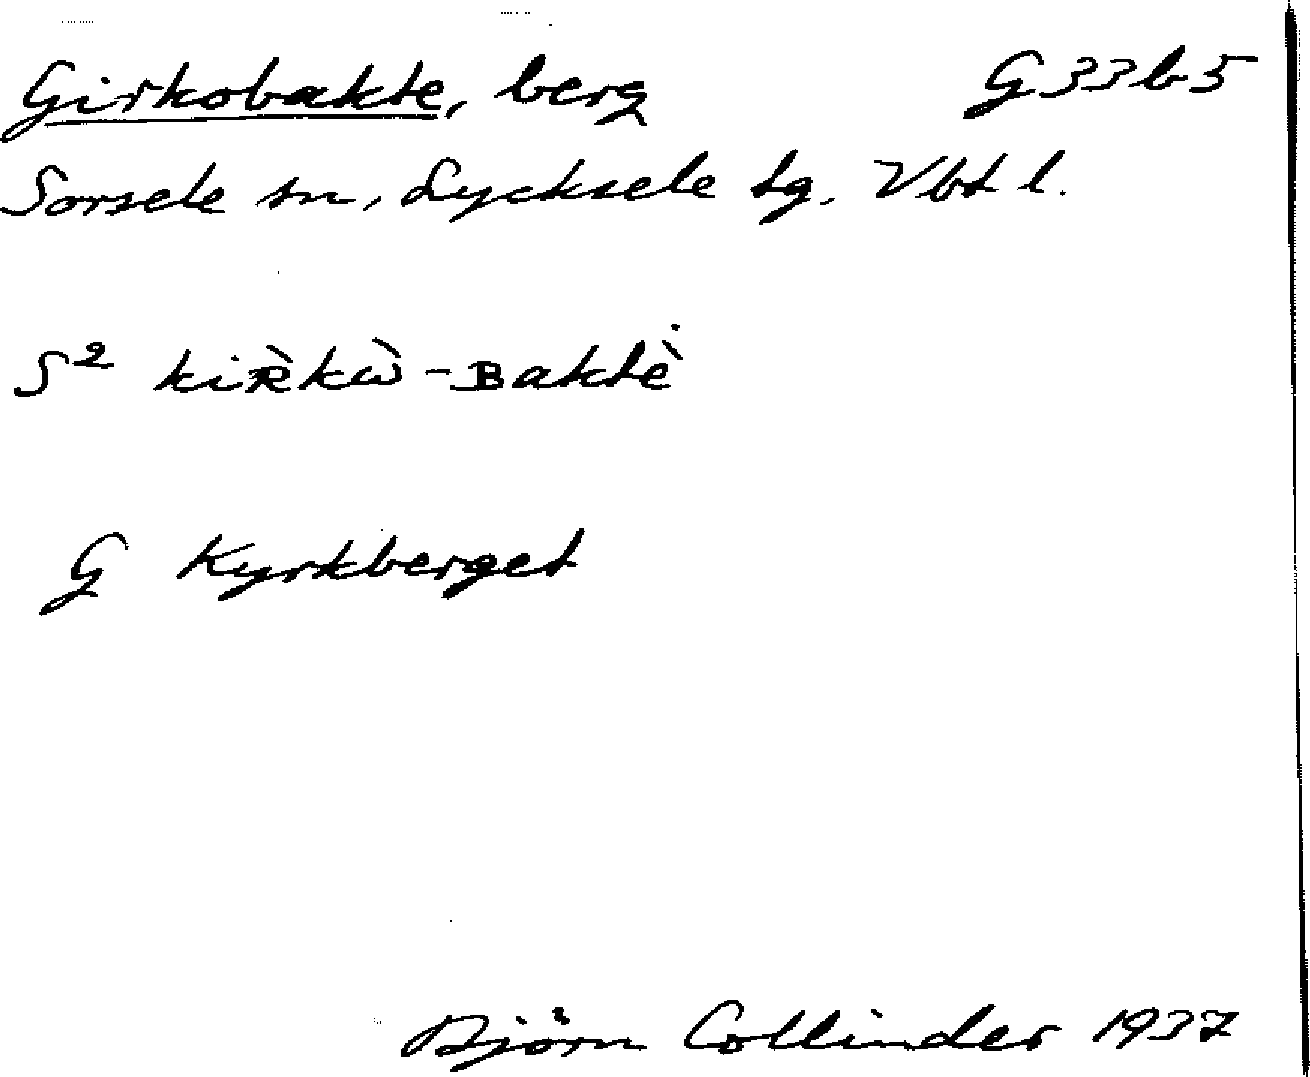 Girkobakte, berg G33b5
Sorsele sn, Lycksele tg. Vbt l.
S² kiʀ̀kὼ-ʙaktė̀
G Kyrkberget
Björn Collinder 1937